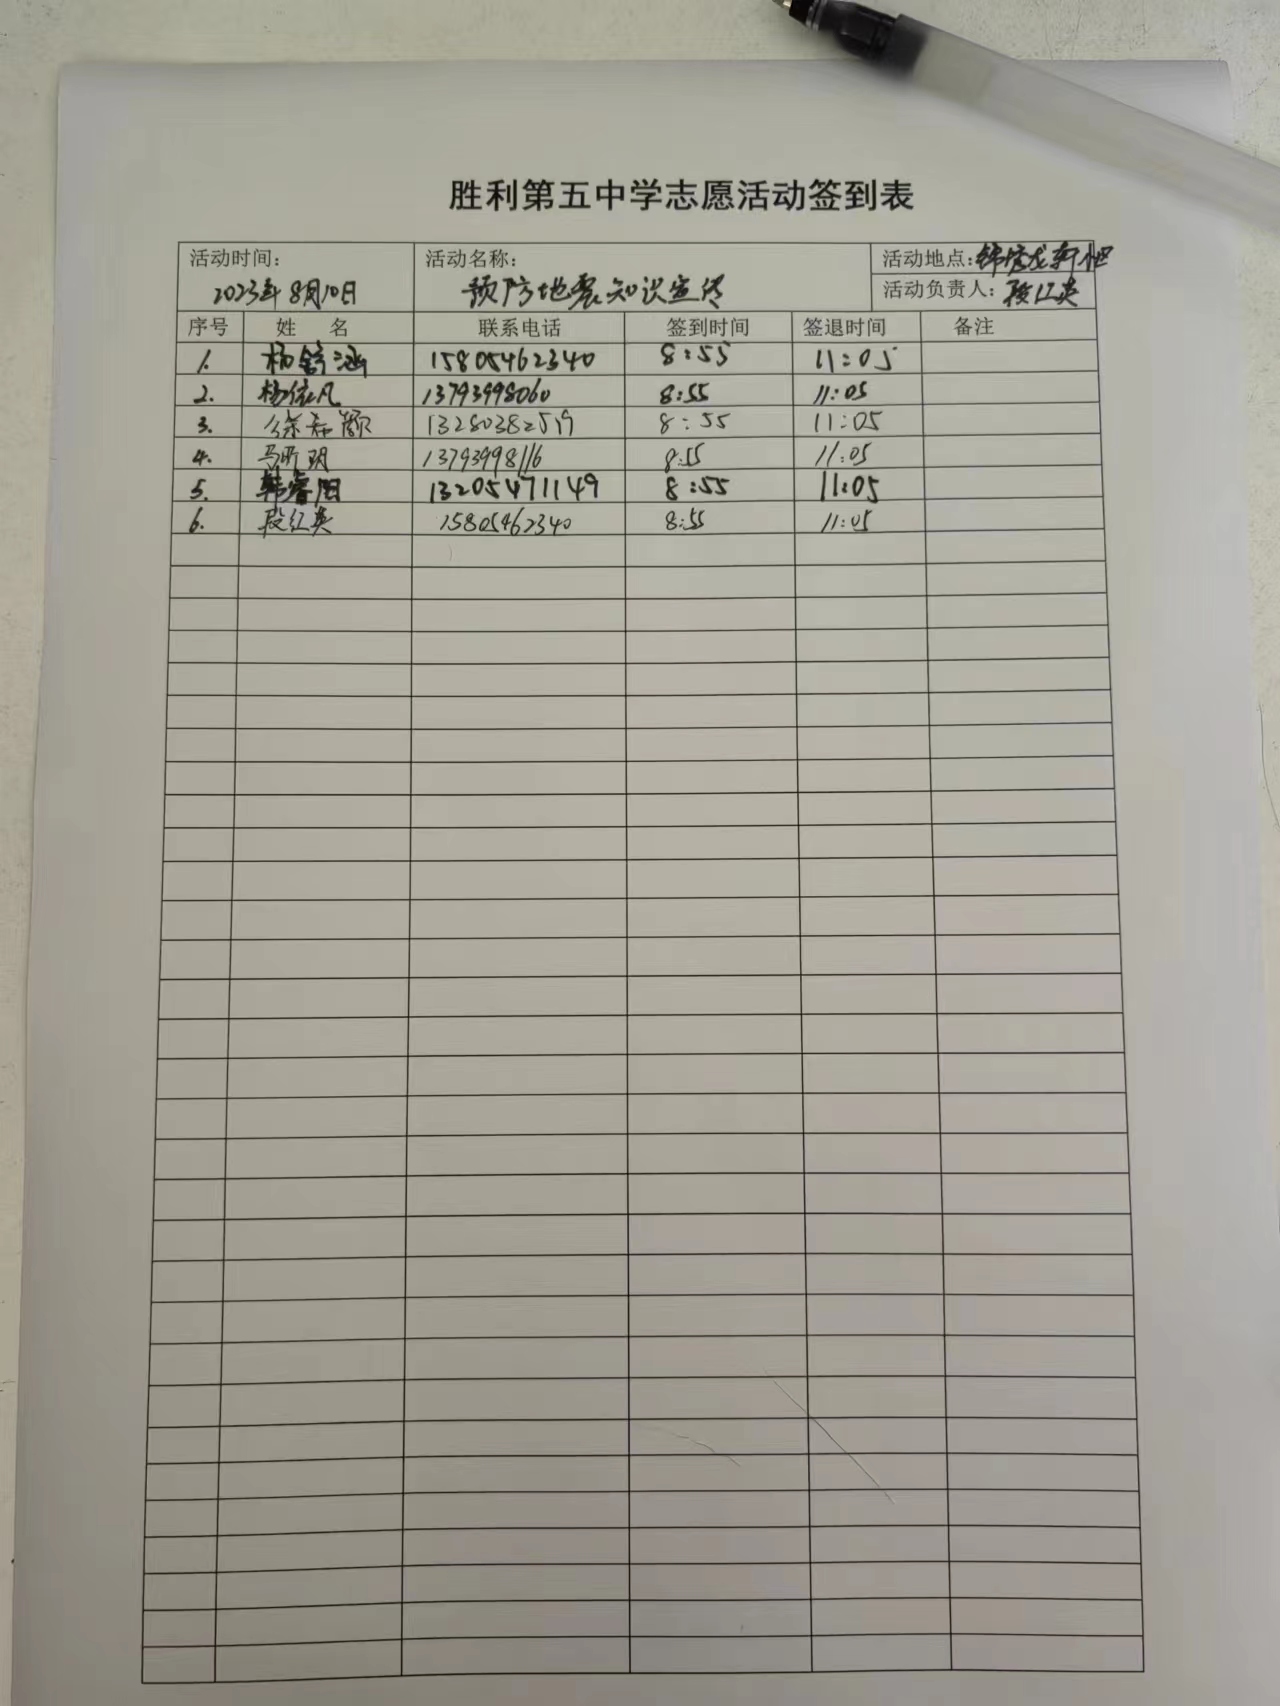 胜利第五中学志愿活动签到表
活动时间： 活动名称： 活动地点：
2023年8月10日 预防地震知识宣传 活动负责人：段红英
序号 姓 名 联系电话 签到时间 签退时间 备注
1. 杨舒涵 15805462340 8:55 11:05
2. 杨依凡 13793998060 8:55 11:05
3. 徐嘉颖 13280382519 8:55 11:05
4. 马昕玥 13793998116 8:55 11:05
5. 韩睿阳 13205471149 8:55 11:05
6. 段红英 15805462340 8:55 11:05